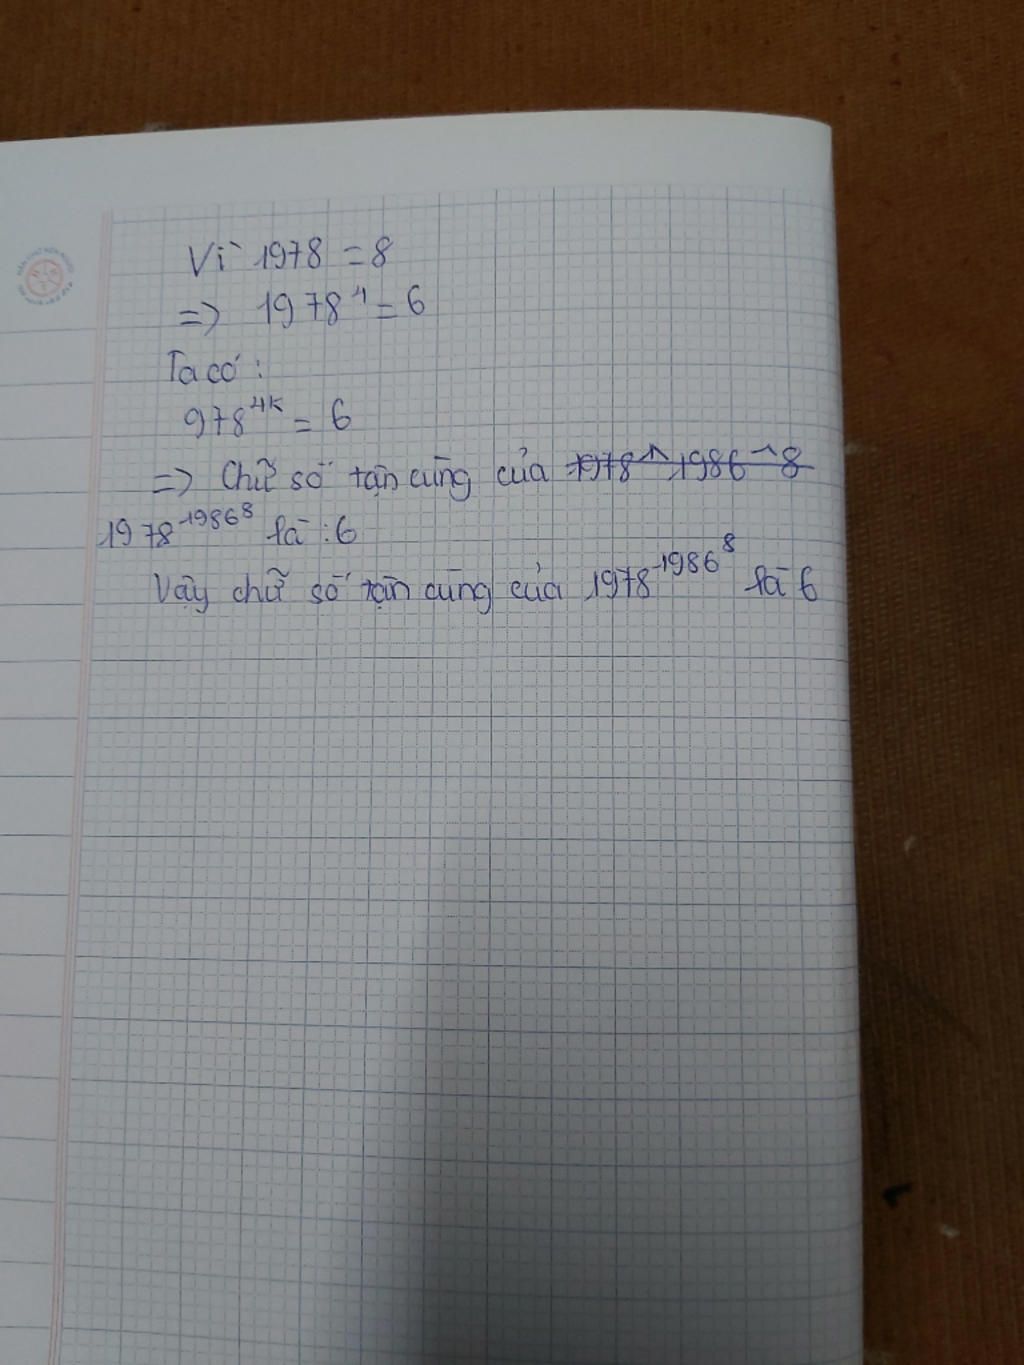 Vì 1978 = 8
=> 1978⁴ = 6
Ta có :
978⁴ᴷ = 6
=> Chữ số tận cùng của 1978^1986^8
1978¹⁹⁸⁶^8 là : 6
Vậy chữ số tận cùng của 1978¹⁹⁸⁶^8 là 6